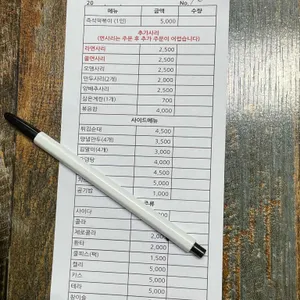 20 No. /
메뉴 금액 수량
즉석떡볶이 (1인) 5,000
추가사리
(면사리는 주문 후 추가 주문이 어렵습니다)
라면사리 2,500
쫄면사리 2,500
오뎅사리 2,500
만두사리(2개) 2,000
양배추사리 2,500
삶은계란(1개) 700
볶음밥 4,000
사이드메뉴
튀김순대 4,500
양념만두(4개) 3,500
김말이(4개) 3,000
4,000
4,500
5,000
공기밥 1,000
주류
사이다
콜라 2,000
제로콜라 2,000
환타 2,000
쿨피스(팩) 1,500
켈리 5,000
카스 5,000
테라 5,000
참이슬